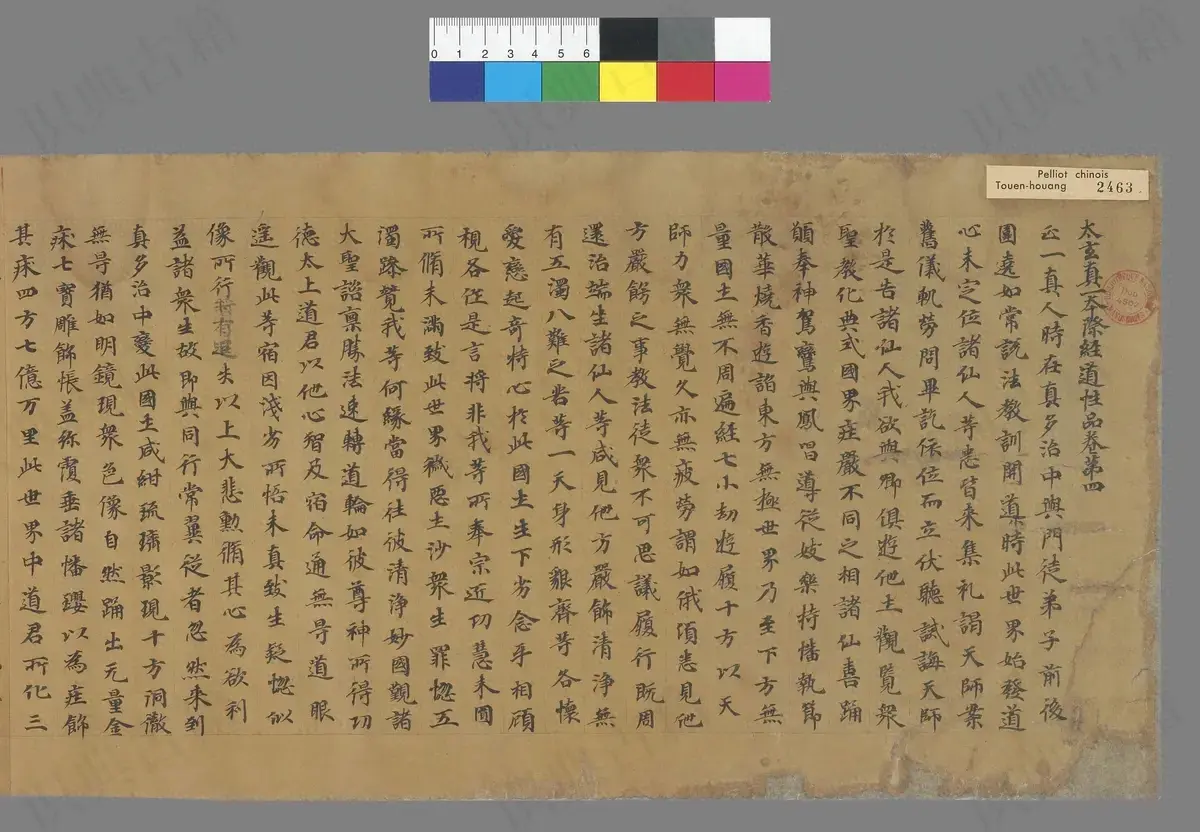 0 1 2 3 4 5 6
Pelliot chinois
Touen-houang 2463.
太玄真一本際經道性品卷第四
正一真人時在真多治中與門徒弟子前後
圍遶如常說法教訓開道時此世界始發道
心未定位諸仙人等悉皆來集礼謁天師業
舊儀軌勞問畢訖依位而立伏聽誡誨天師
於是告諸仙人我欲與卿俱遊他土觀覽衆
聖教化典式國界庄嚴不同之相諸仙喜踊
願奉神駕鸞輿鳳唱導從妓樂持幡執節
散華燒香遊詣東方無極世界乃至下方無
量國土無不周遍經七小劫遊履十方以天
師力衆無覺久亦無疲勞謂如俄頃悉見他
方嚴餝之事教法徒衆不可思議履行既周
還治端坐諸仙人等咸見他方嚴飾清浄無
有五濁八難之苦等一天身形貌齊等各懷
愛戀起奇特心於此國土生下劣念乎相頋
視各作是言將非我等所奉宗近功慧未圓
所脩未滿致此世界穢惡土沙衆生罪惱五
濁躁競我等何緣當得往彼清浄妙國覲諸
大聖諮稟勝法速轉道輪如彼尊神所得功
德太上道君以他心智及宿命通無㝵道眼
遥觀此等宿因淺劣所悟未真致生疑惚似
像所行將有退失以上大悲勳脩其心為欲利
益諸衆生故即與同行常翼從者忽然来到
真多治中變此國土咸紺琉璃影現十方洞徹
無㝵猶如明鏡現衆色像自然踊出元量金
床七寶雕飾帳盖弥覆垂諸幡瓔以為庄飾
其床四方七億万里此世界中道君所化三